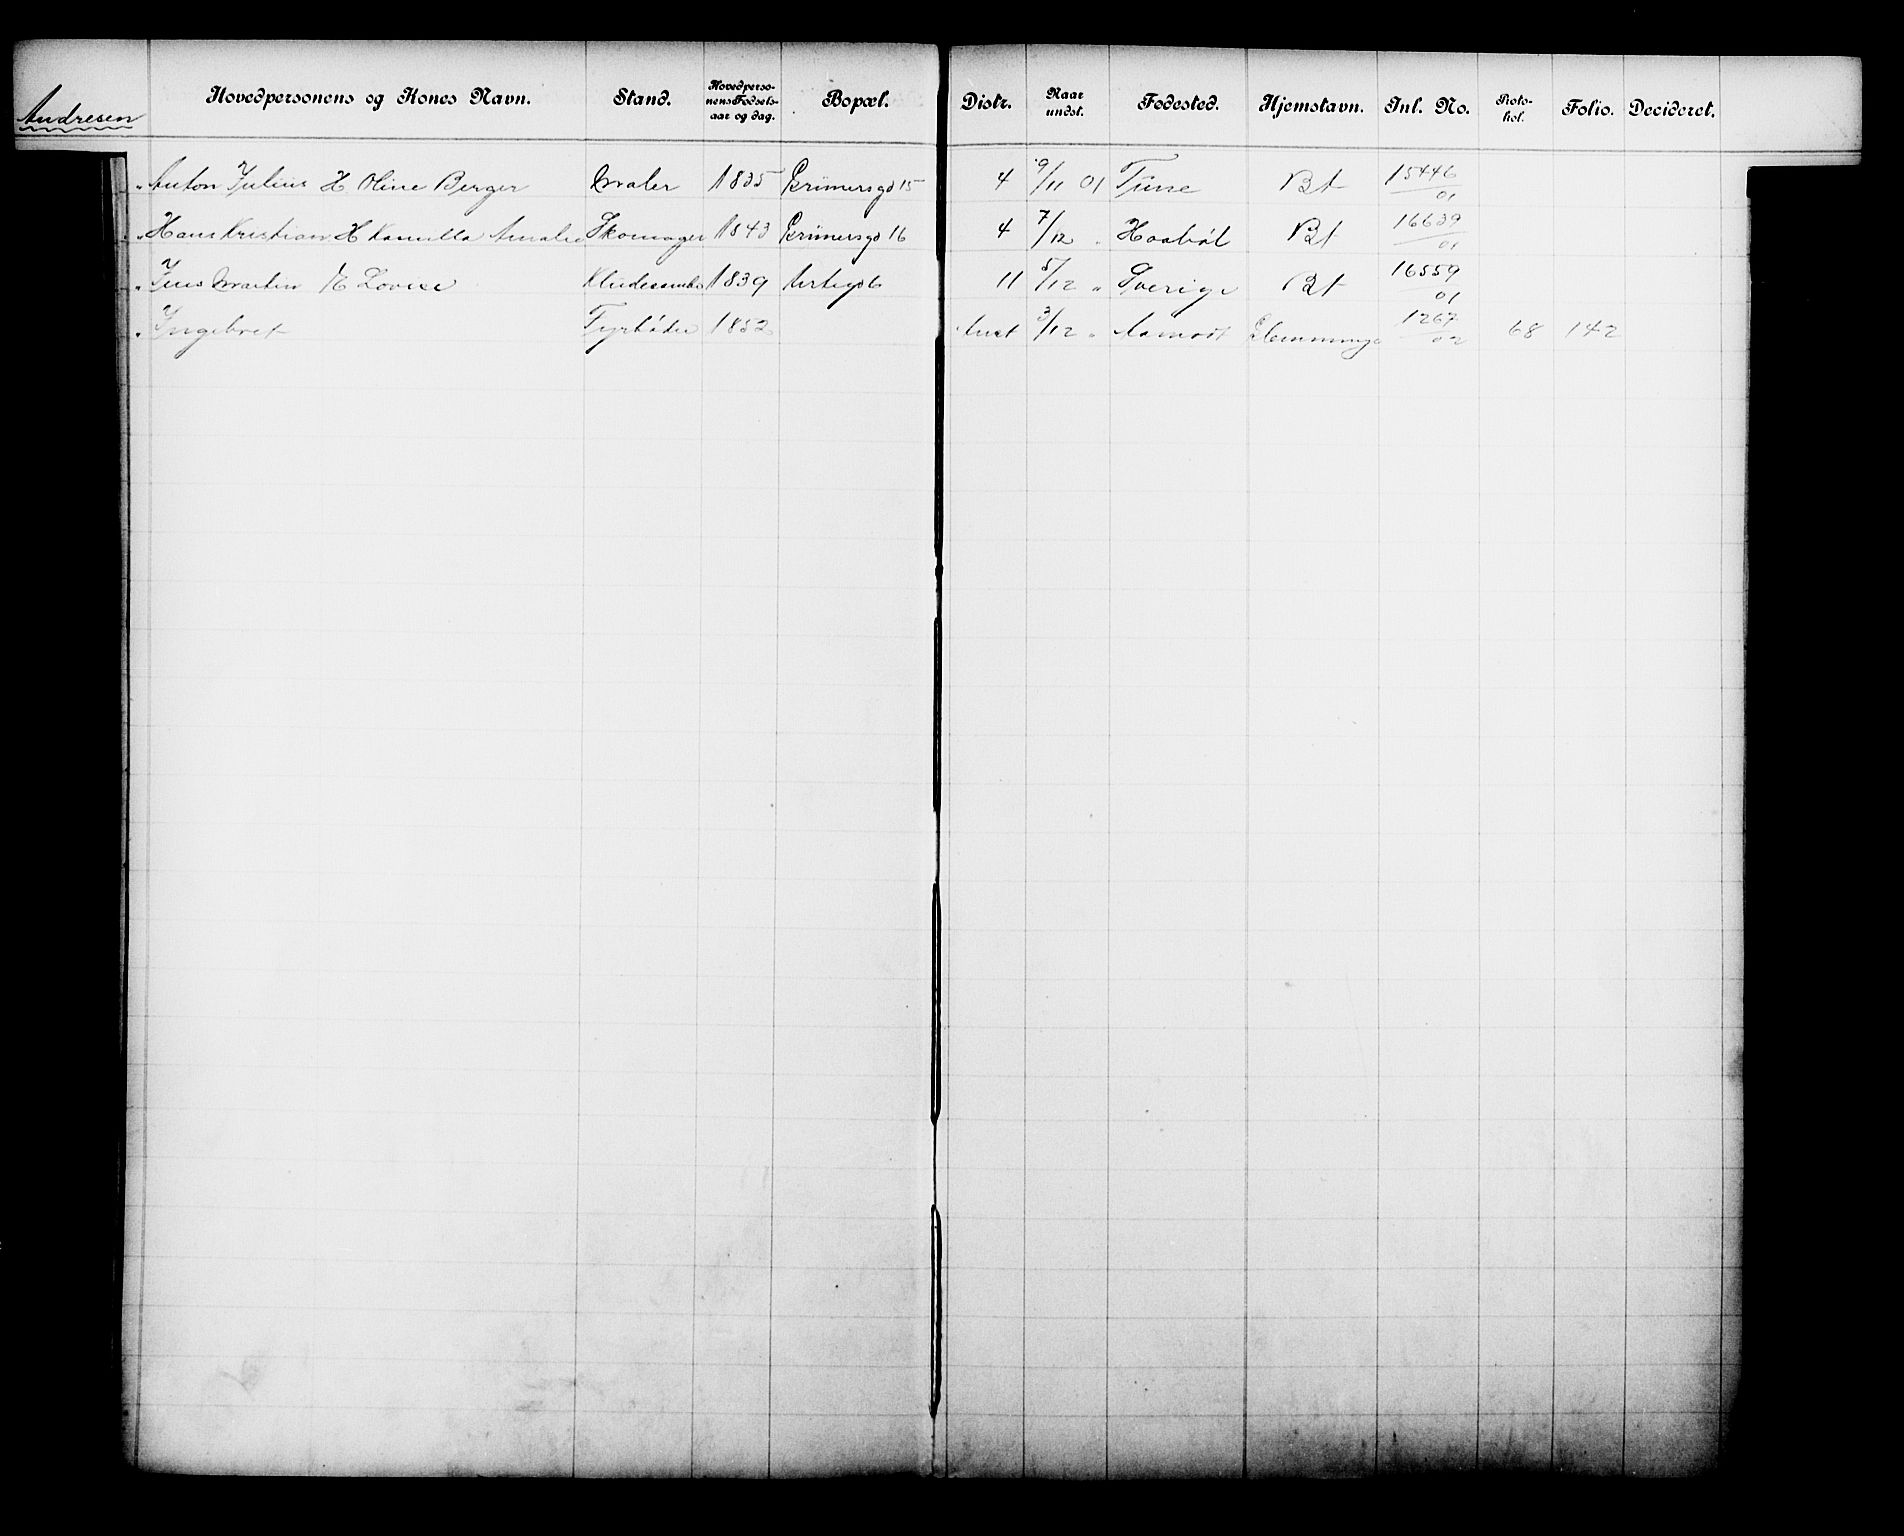 Andresen
Hovedpersonens og Kones Navn. Stand. Hovedperso-nens Fødsels-aar og dag. Bopæl. Distr. Naar undst. Fødested. Hjemstavn. Inl. No. Proto-kol. Folio. Decideret.
" Anton Julius H Oline Berger Maler 1835 Grünersgd 15 4 9/11 01 Tune Bt 15446/01
" Hans Kristian H Kamilla Amalie Skomager 1843 Grünersgd 16 4 7/12 " Haabøl Bt 16639/01
" Jens Martin H Lovise 1839 11 5/12 " Sverige Bt 16559/01
" Ingebret Fyrbøder 1852 Anst 3/12 " Aamodt Glemminge 1267/02 68 142